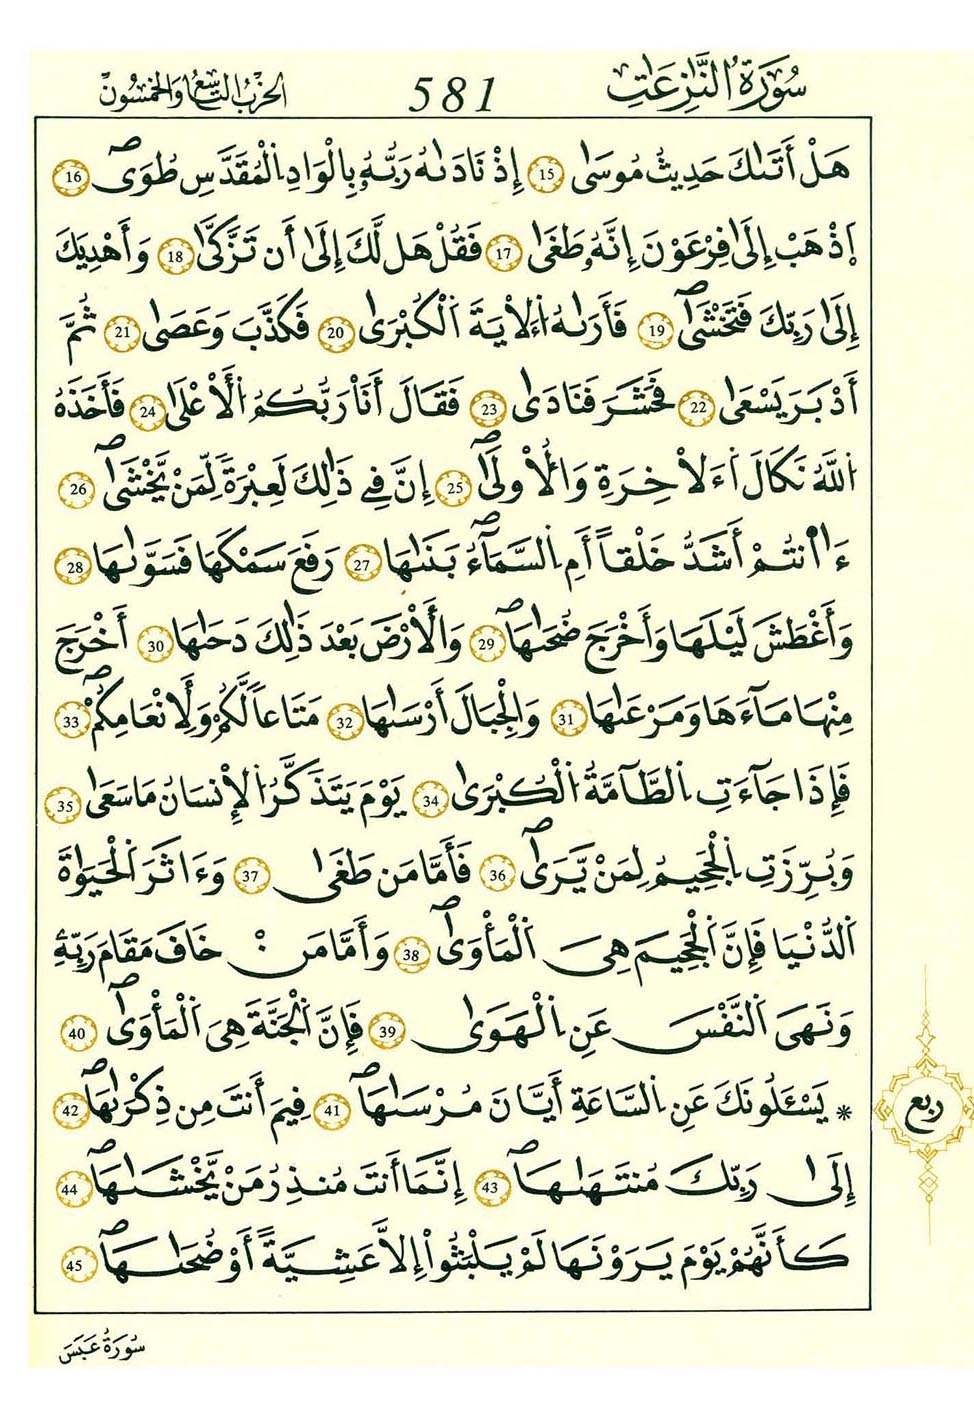 سُورَةُ النَّٰزِعَٰتِ 581 الحِزْبُ التَّاسِعُ وَالخَمْسُونَ
هَلْ أَتَىٰكَ حَدِيثُ مُوسَىٰ 15 إِذْ نَادَىٰهُ رَبُّهُۥ بِالْوَادِ اِلْمُقَدَّسِ طُوَىٰ 16
اَ۪ذْهَبْ إِلَىٰ فِرْعَوْنَ إِنَّهُۥ طَغَىٰ 17 فَقُلْ هَل لَّكَ إِلَىٰ أَن تَزَّكَّىٰ 18 وَأَهْدِيَكَ
إِلَىٰ رَبِّكَ فَتَخْشَىٰ 19 فَأَرَىٰهُ اُ۬ءَلْأيَةَ اَ۬لْكُبْرَىٰ 20 فَكَذَّبَ وَعَصَىٰ 21 ثُمَّ
أَدْبَرَ يَسْعَىٰ 22 فَحَشَرَ فَنَادَىٰ 23 فَقَالَ أَنَا۠ رَبُّكُمُ اُ۬لْأَعْلَىٰ 24 فَأَخَذَهُ
اُ۬للَّهُ نَكَالَ اَ۬ءَلْأخِرَةِ وَالُاْولَىٰ 25 إِنَّ فِے ذَٰلِكَ لَعِبْرَةً لِّمَنْ يَّخْشَىٰ 26
ءَا۬نتُمْ أَشَدُّ خَلْقاً أَمِ اِ۬لسَّمَآءُ بَنَىٰهَا 27 رَفَعَ سَمْكَهَا فَسَوَّىٰهَا 28
وَأَغْطَشَ لَيْلَهَا وَأَخْرَجَ ضُحَىٰهَا 29 وَالَارْضَ بَعْدَ ذَٰلِكَ دَحَىٰهَا 30 أَخْرَجَ
مِنْهَا مَآءَهَا وَمَرْعَىٰهَا 31 وَالْجِبَالَ أَرْسَىٰهَا 32 مَتَاعاً لَّكُمْ وَلِأَنْعَامِكُمْ 33
فَإِذَا جَآءَتِ اِ۬لطَّآمَّةُ اُ۬لْكُبْرَىٰ 34 يَوْمَ يَتَذَكَّرُ اُ۬لْإِنسَانُ مَا سَعَىٰ 35
وَبُرِّزَتِ اِ۬لْجَحِيمُ لِمَنْ يَّرَىٰ 36 فَأَمَّا مَن طَغَىٰ 37 وَءَاثَرَ اَ۬لْحَيَوٰةَ
اَ۬لدُّنْيَا فَإِنَّ اَ۬لْجَحِيمَ هِىَ اَ۬لْمَأْوَىٰ 38 وَأَمَّا مَنْ خَافَ مَقَامَ رَبِّهِۦ
وَنَهَى اَ۬لنَّفْسَ عَنِ اِ۬لْهَوَىٰ 39 فَإِنَّ اَ۬لْجَنَّةَ هِىَ اَ۬لْمَأْوَىٰ 40
* يَسْـَٔلُونَكَ عَنِ اِ۬لسَّاعَةِ أَيَّانَ مُرْسَىٰهَا 41 فِيمَ أَنتَ مِن ذِكْرَىٰهَا 42
ربع
إِلَىٰ رَبِّكَ مُنتَهَىٰهَا 43 إِنَّمَا أَنتَ مُنذِرُ مَنْ يَّخْشَىٰهَا 44
كَأَنَّهُمْ يَوْمَ يَرَوْنَهَا لَمْ يَلْبَثُواْ إِلَّا عَشِيَّةً أَوْ ضُحَىٰهَا 45
سُورَةُ عَبَسَ